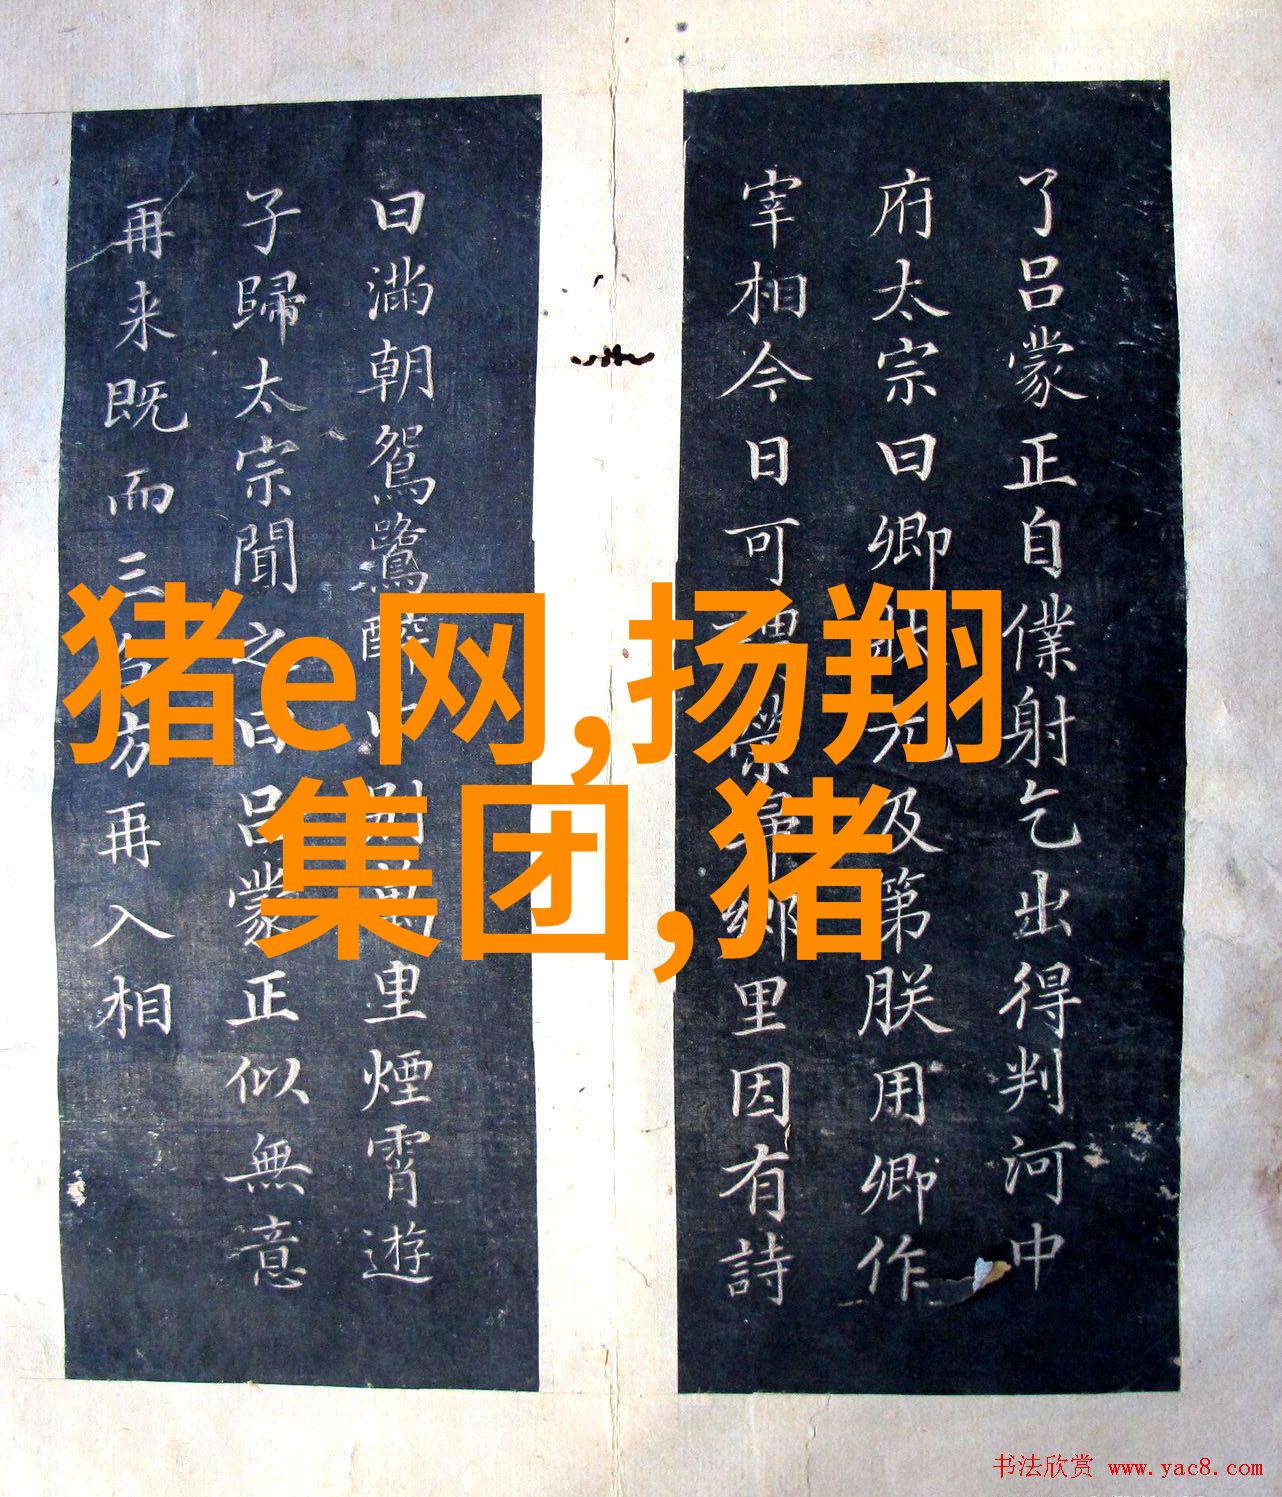 了吕蒙正自僕射乞出得判河中
府太宗曰卿状元及第朕用卿作
宰相今日可謂榮歸鄉里因有詩
曰滿朝鴛鷺醉中別萬里煙霄遊
子歸太宗聞之曰吕蒙正似無意
再来既而三方再入相
猪e网,扬翔
集团,猪
书法欣赏 www.yac8.com